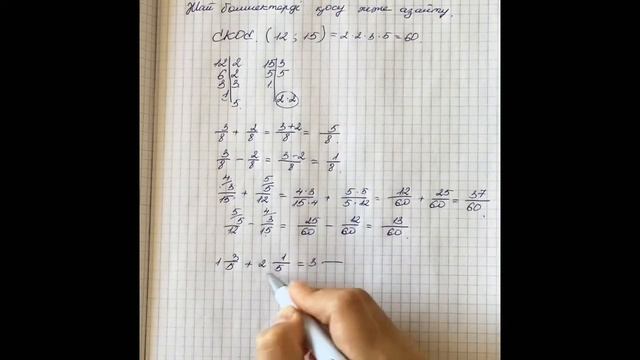 Жай бөлшектерді қосу және азайту.
ЕКОЕ (12 ; 15) = 2·2·3·5 = 60
12 | 2 15 | 3
6 | 2 5 | 5
3 | 3 1
1 | 5 2·2
3/8 + 2/8 = 3+2/8 = 5/8.
3/8 - 2/8 = 3-2/8 = 1/8.
4/ 3/15 + 5/ 5/12 = 4·3/15·4 + 5·5/5·12 = 12/60 + 25/60 = 37/60.
5/ 5/12 - 4/ 3/15 = 25/60 - 12/60 = 13/60.
1 3/5 + 2 1/5 = 3 —